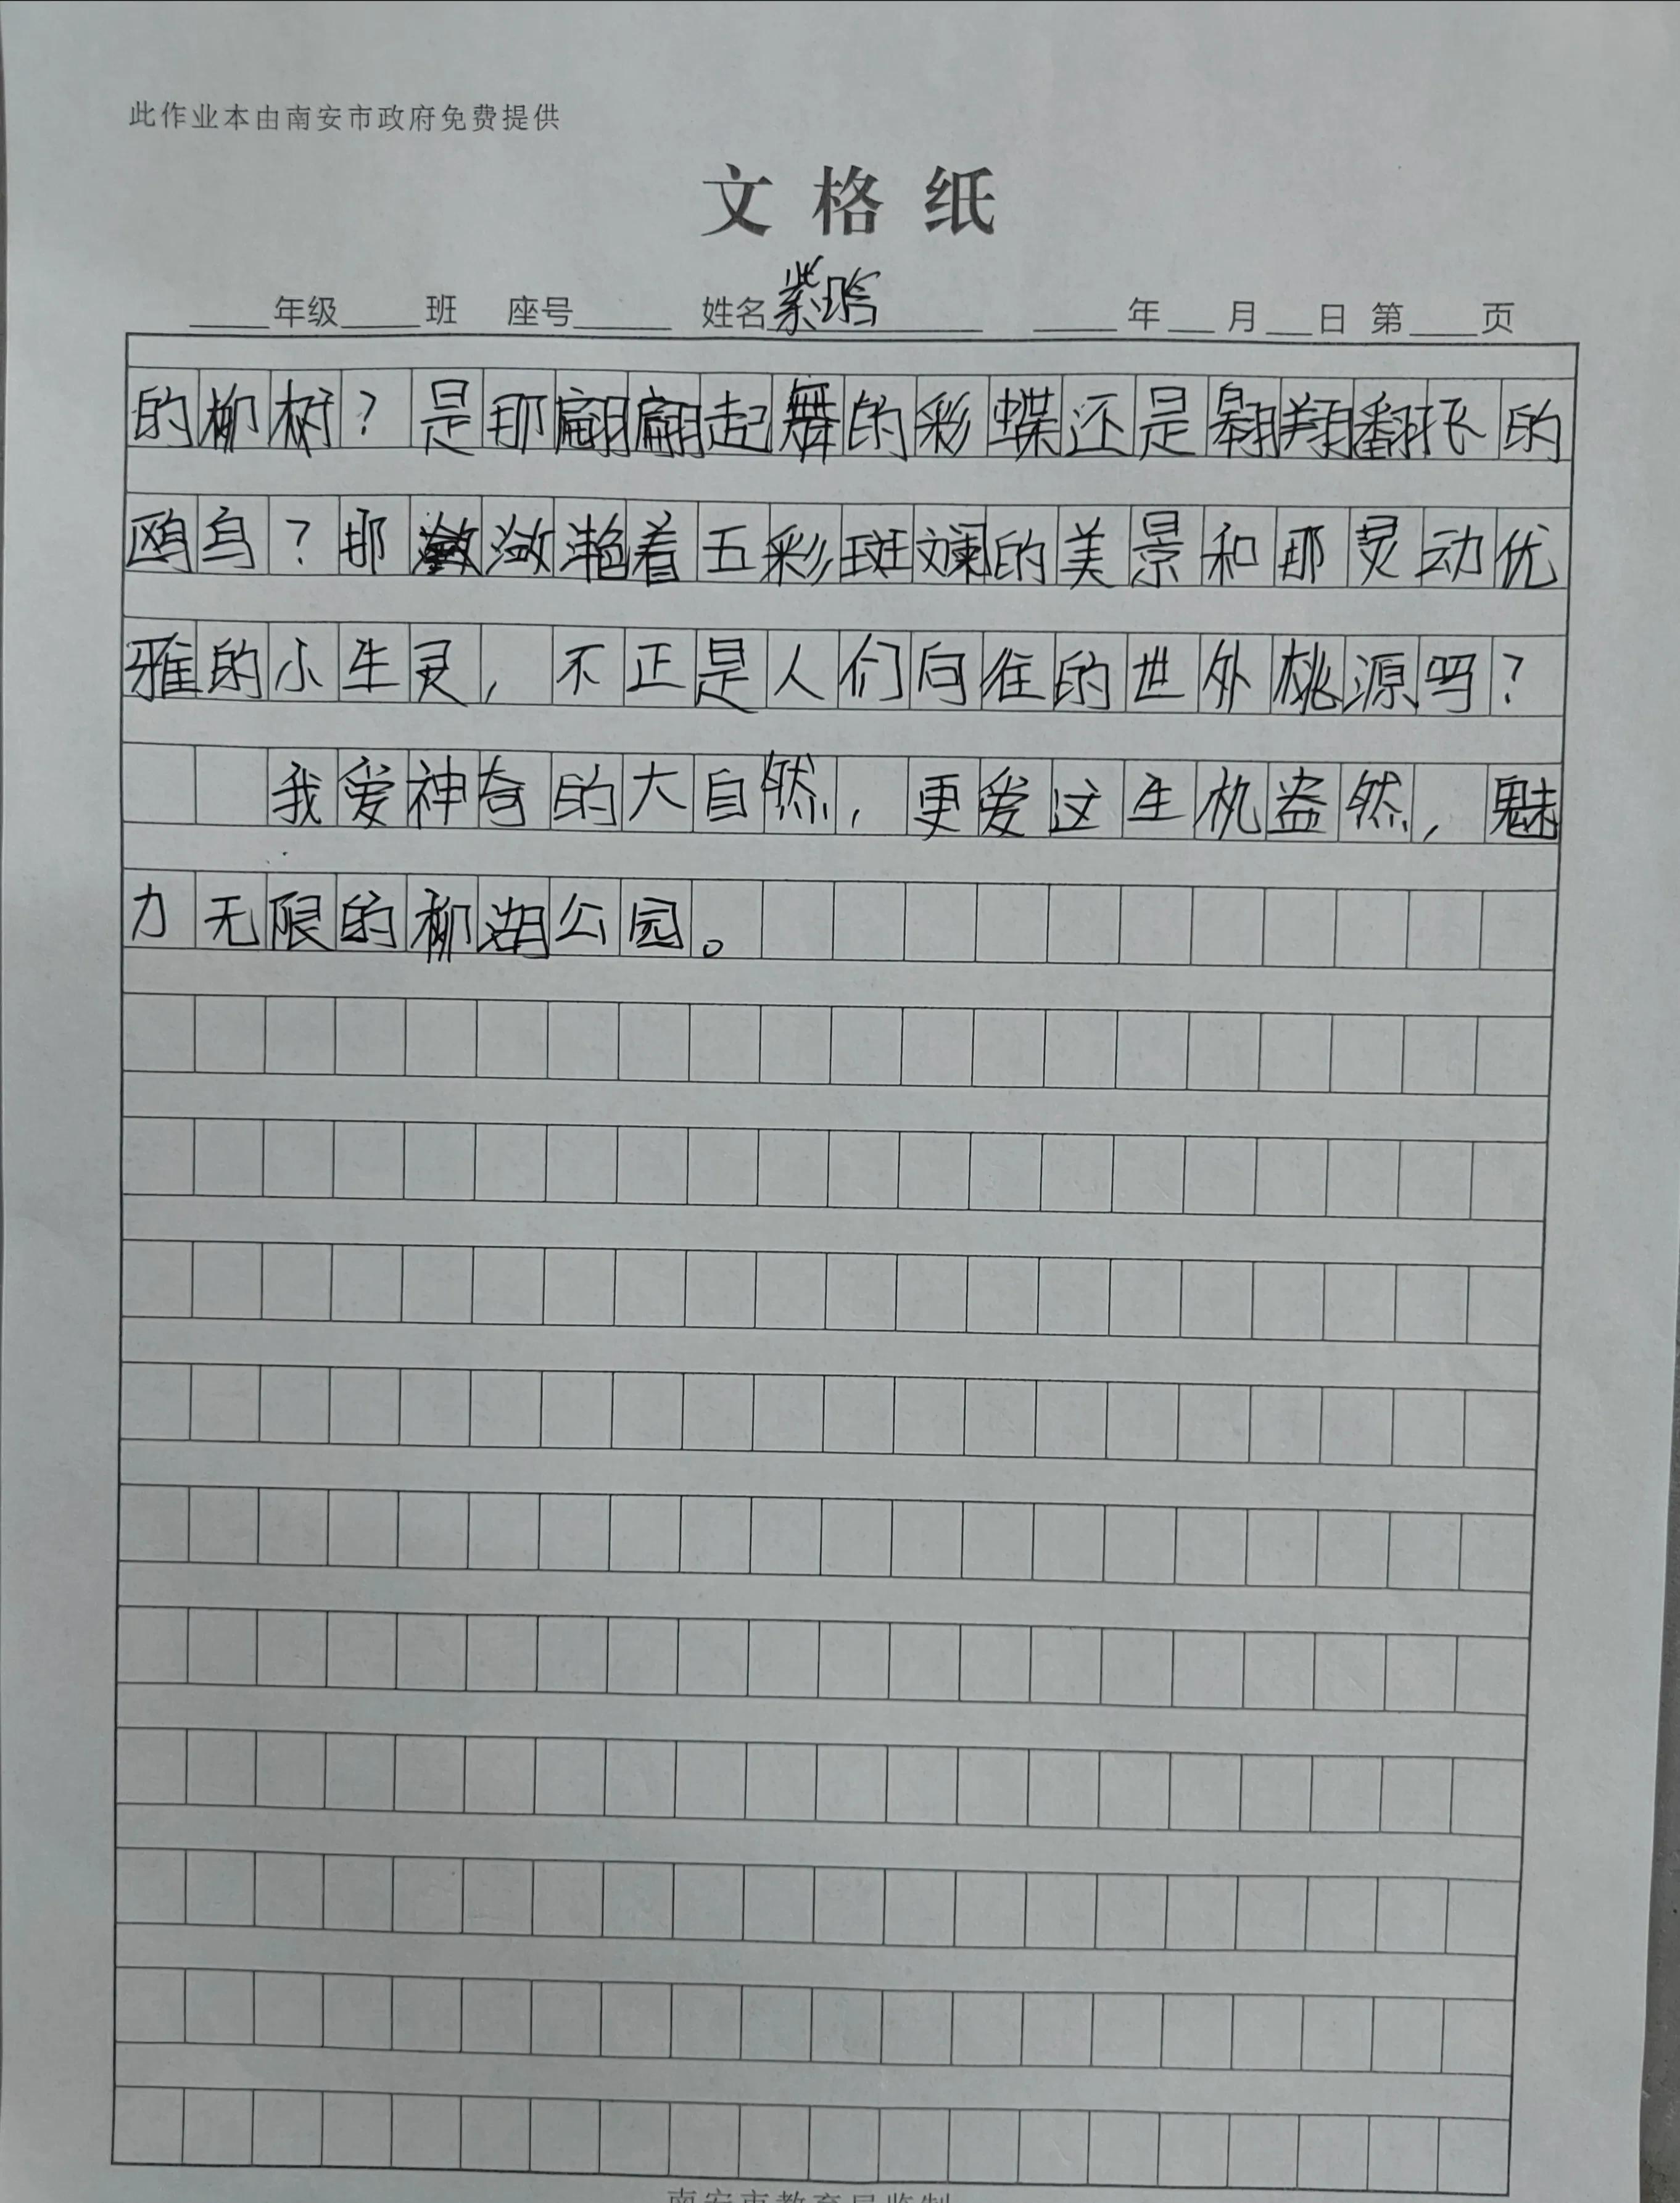 此作业本由南安市政府免费提供
文格纸
年级 班 座号 姓名 紫晗 年 月 日 第 页
的柳树？是那翩翩起舞的彩蝶还是翱翔翻飞的
鸥鸟？那潋滟着五彩斑斓的美景和那灵动优
雅的小生灵，不正是人们向往的世外桃源吗？
我爱神奇的大自然，更爱这生机盎然，魅
力无限的柳湖公园。
南安市教育局监制